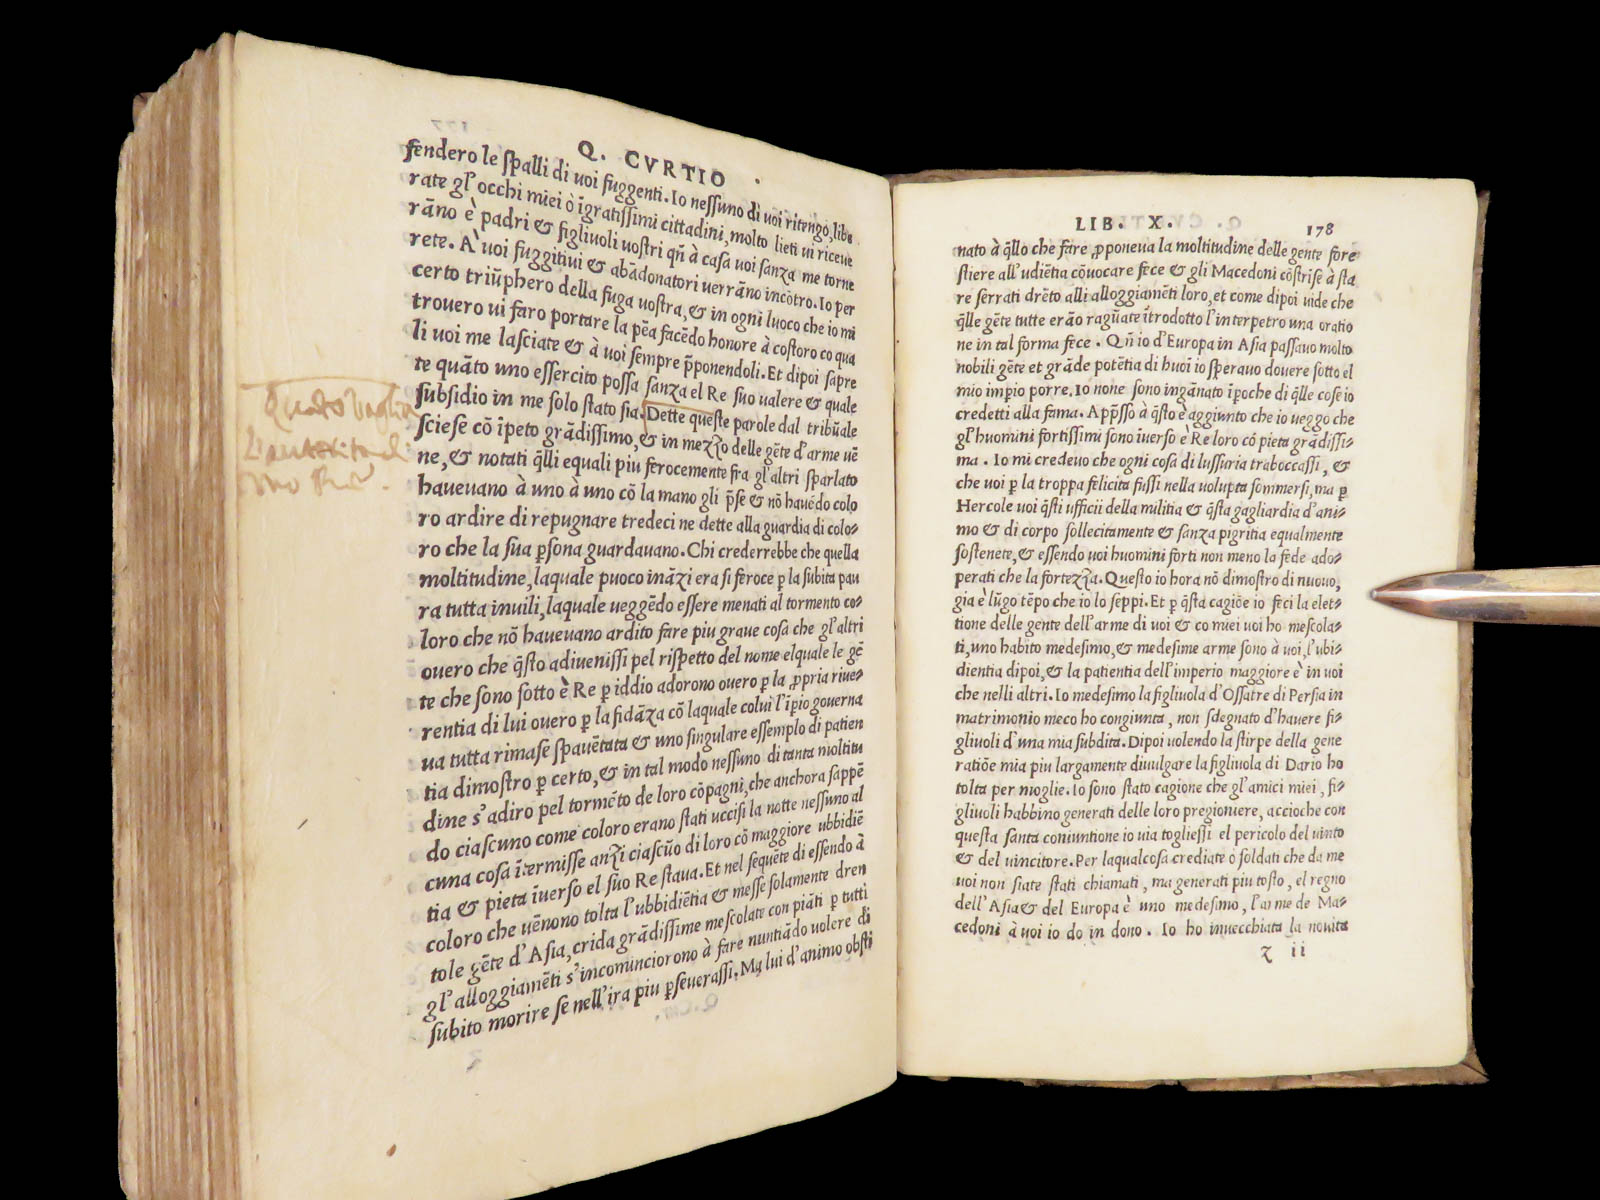 Q. CVRTIO
fendero le spalli di uoi fuggenti. Io nessuno di uoi ritengo, libe
rate gl'occhi miei ò īgratissimi cittadini, molto lieti ui riceue
rāno è padri & figliuoli uostri qñ à casa uoi sanza me torne
rete. A' uoi fuggitiui & abādonatori uerrāno incōtro. Io per
certo triūphero della fuga uostra, & in ogni luoco che io mi
trouero ui faro portare la pēa facēdo honore à costoro co qua
li uoi me lasciate & à uoi sempre p̄ponendoli. Et dipoi sapre
te quāto uno essercito possa sanza el Re suo ualere & quale
subsidio in me solo stato sia. Dette queste parole dal tribūale
sciese cō īpeto grādissimo, & in mezzo delle gēte d'arme uē
ne, & notati q̄lli equali piu ferocemente fra gl'altri sparlato
haueuano à uno à uno cō la mano gli p̄se & nō hauēdo colo
ro ardire di repugnare tredeci ne dette alla guardia di colo-
ro che la sua ꝑsona guardauano. Chi crederrebbe che quella
moltitudine, laquale puoco ināzi era si feroce ꝑ la subita pau
ra tutta inuili, laquale ueggēdo essere menati al tormento co-
loro che nō haueuano ardito fare piu graue cosa che gl'altri
ouero che q̄sto adiuenissi pel rispetto del nome elquale le gē
te che sono sotto è Re ꝑ iddio adorono ouero ꝑ la ꝓpria riue-
rentia di lui ouero ꝑ la fidāza cō laquale colui l'īpio gouerna
ua tutta rimase spauētata & uno singulare essemplo di patien
tia dimostro ꝑ certo, & in tal modo nessuno di tanta moltitu
dine s'adiro pel tormēto de loro cōpagni, che anchora sappē
do ciascuno come coloro erano stati uccisi la notte nessuno al
cuna cosa ītermisse anzi ciascūo di loro cō maggiore ubbidiē
tia & pieta īuerso el suo Re staua. Et nel sequēte di essendo à
coloro che uēnono tolta l'ubbidiētia & messe solamente dren
tole gēte d'Asia, crida grādissime mescolate con piāti ꝑ tutti
gl'alloggiamēti s'incominciorono à fare nuntiādo uolere di
subito morire se nell'ira piu ꝑseuerassi. Ma lui d'animo obsti
LIB. X. 178
nato à q̄llo che fare ꝓponeua la moltitudine delle gente fore
stiere all'udiētia cōuocare fece & gli Macedoni cōstrise à sta
re serrati drēto alli alloggiamēti loro, et come dipoi uide che
q̄lle gēte tutte erāo raguāte ītrodotto l'interpetro una oratio
ne in tal forma fece. Qñ io d'Europa in Asia passauo molto
nobili gēte et grāde potētia di huoī io sperauo douere sotto el
mio imp̄io porre. Io none sono ingānato īpoche di q̄lle cose io
credetti alla fama. App̄sso à q̄sto è aggiunto che io ueggo che
gl'huomini fortissimi sono īuerso è Re loro cō pieta grādissi-
ma. Io mi credeuo che ogni cosa di lussuria traboccassi, &
che uoi ꝑ la troppa felicita fussi nella uolupta sommersi, ma ꝑ
Hercole uoi q̄sti ufficii della militia & q̄sta gagliardia d'ani-
mo & di corpo sollecitamente & sanza pigritia equalmente
sostenete, & essendo uoi huomini forti non meno la fede ado-
perati che la fortezza. Questo io hora nō dimostro di nuouo,
gia è lūgo tēpo che io lo seppi. Et ꝑ q̄sta cagiōe io feci la elet-
tione delle gente dell'arme di uoi & co miei uoi ho mescola-
ti, uno habito medesimo, & medesime arme sono à uoi, l'ubi-
dientia dipoi, & la patientia dell'imperio maggiore è in uoi
che nelli altri. Io medesimo la figliuola d'Ossatre di Persia in
matrimonio meco ho congiunta, non sdegnato d'hauere fi-
gliuoli d'una mia subdita. Dipoi uolendo la stirpe della gene
ratiōe mia piu largamente diuulgare la figliuola di Dario ho
tolta per moglie. Io sono stato cagione che gl'amici miei, fi-
gliuoli habbino generati delle loro pregioniere, accioche con
questa santa coniuntione io uia togliessi el pericolo del uinto
& del uincitore. Per laqualcosa crediate ò soldati che da me
uoi non siate stati chiamati, ma generati piu tosto, el regno
dell'Asia & del Europa è uno medesimo, l'arme de Ma-
cedoni à uoi io do in dono. Io ho inuecchiata la nouita
z ii